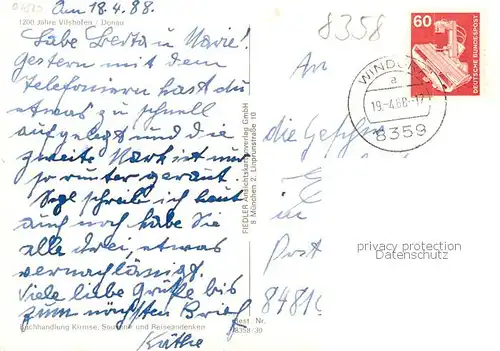 Am 18.4.88.
1200 Jahre Vilshofen / Donau
Liebe Berta u Marie!
Gestern mit dem
Telefonieren hast du
etwas zu schnell
aufgelegt und die
zweite Mark ist mir
so runter
schreib ich heut
auch noch habe Sie
alle drei, etwas
vernachlässigt.
Viele liebe Grüße bis
zum nächsten Brief
Käthe
Buchhandlung Kirmse, Souvenir- und Reiseandenken
FIEDLER Ansichtskartenverlag GmbH
8 München 2, Linprunstraße 10
Best. Nr.
8358
60
DEUTSCHE BUNDESPOST
a
19.-4.88-17
8359
An
die
in
Post
privacy protection
Datenschutz